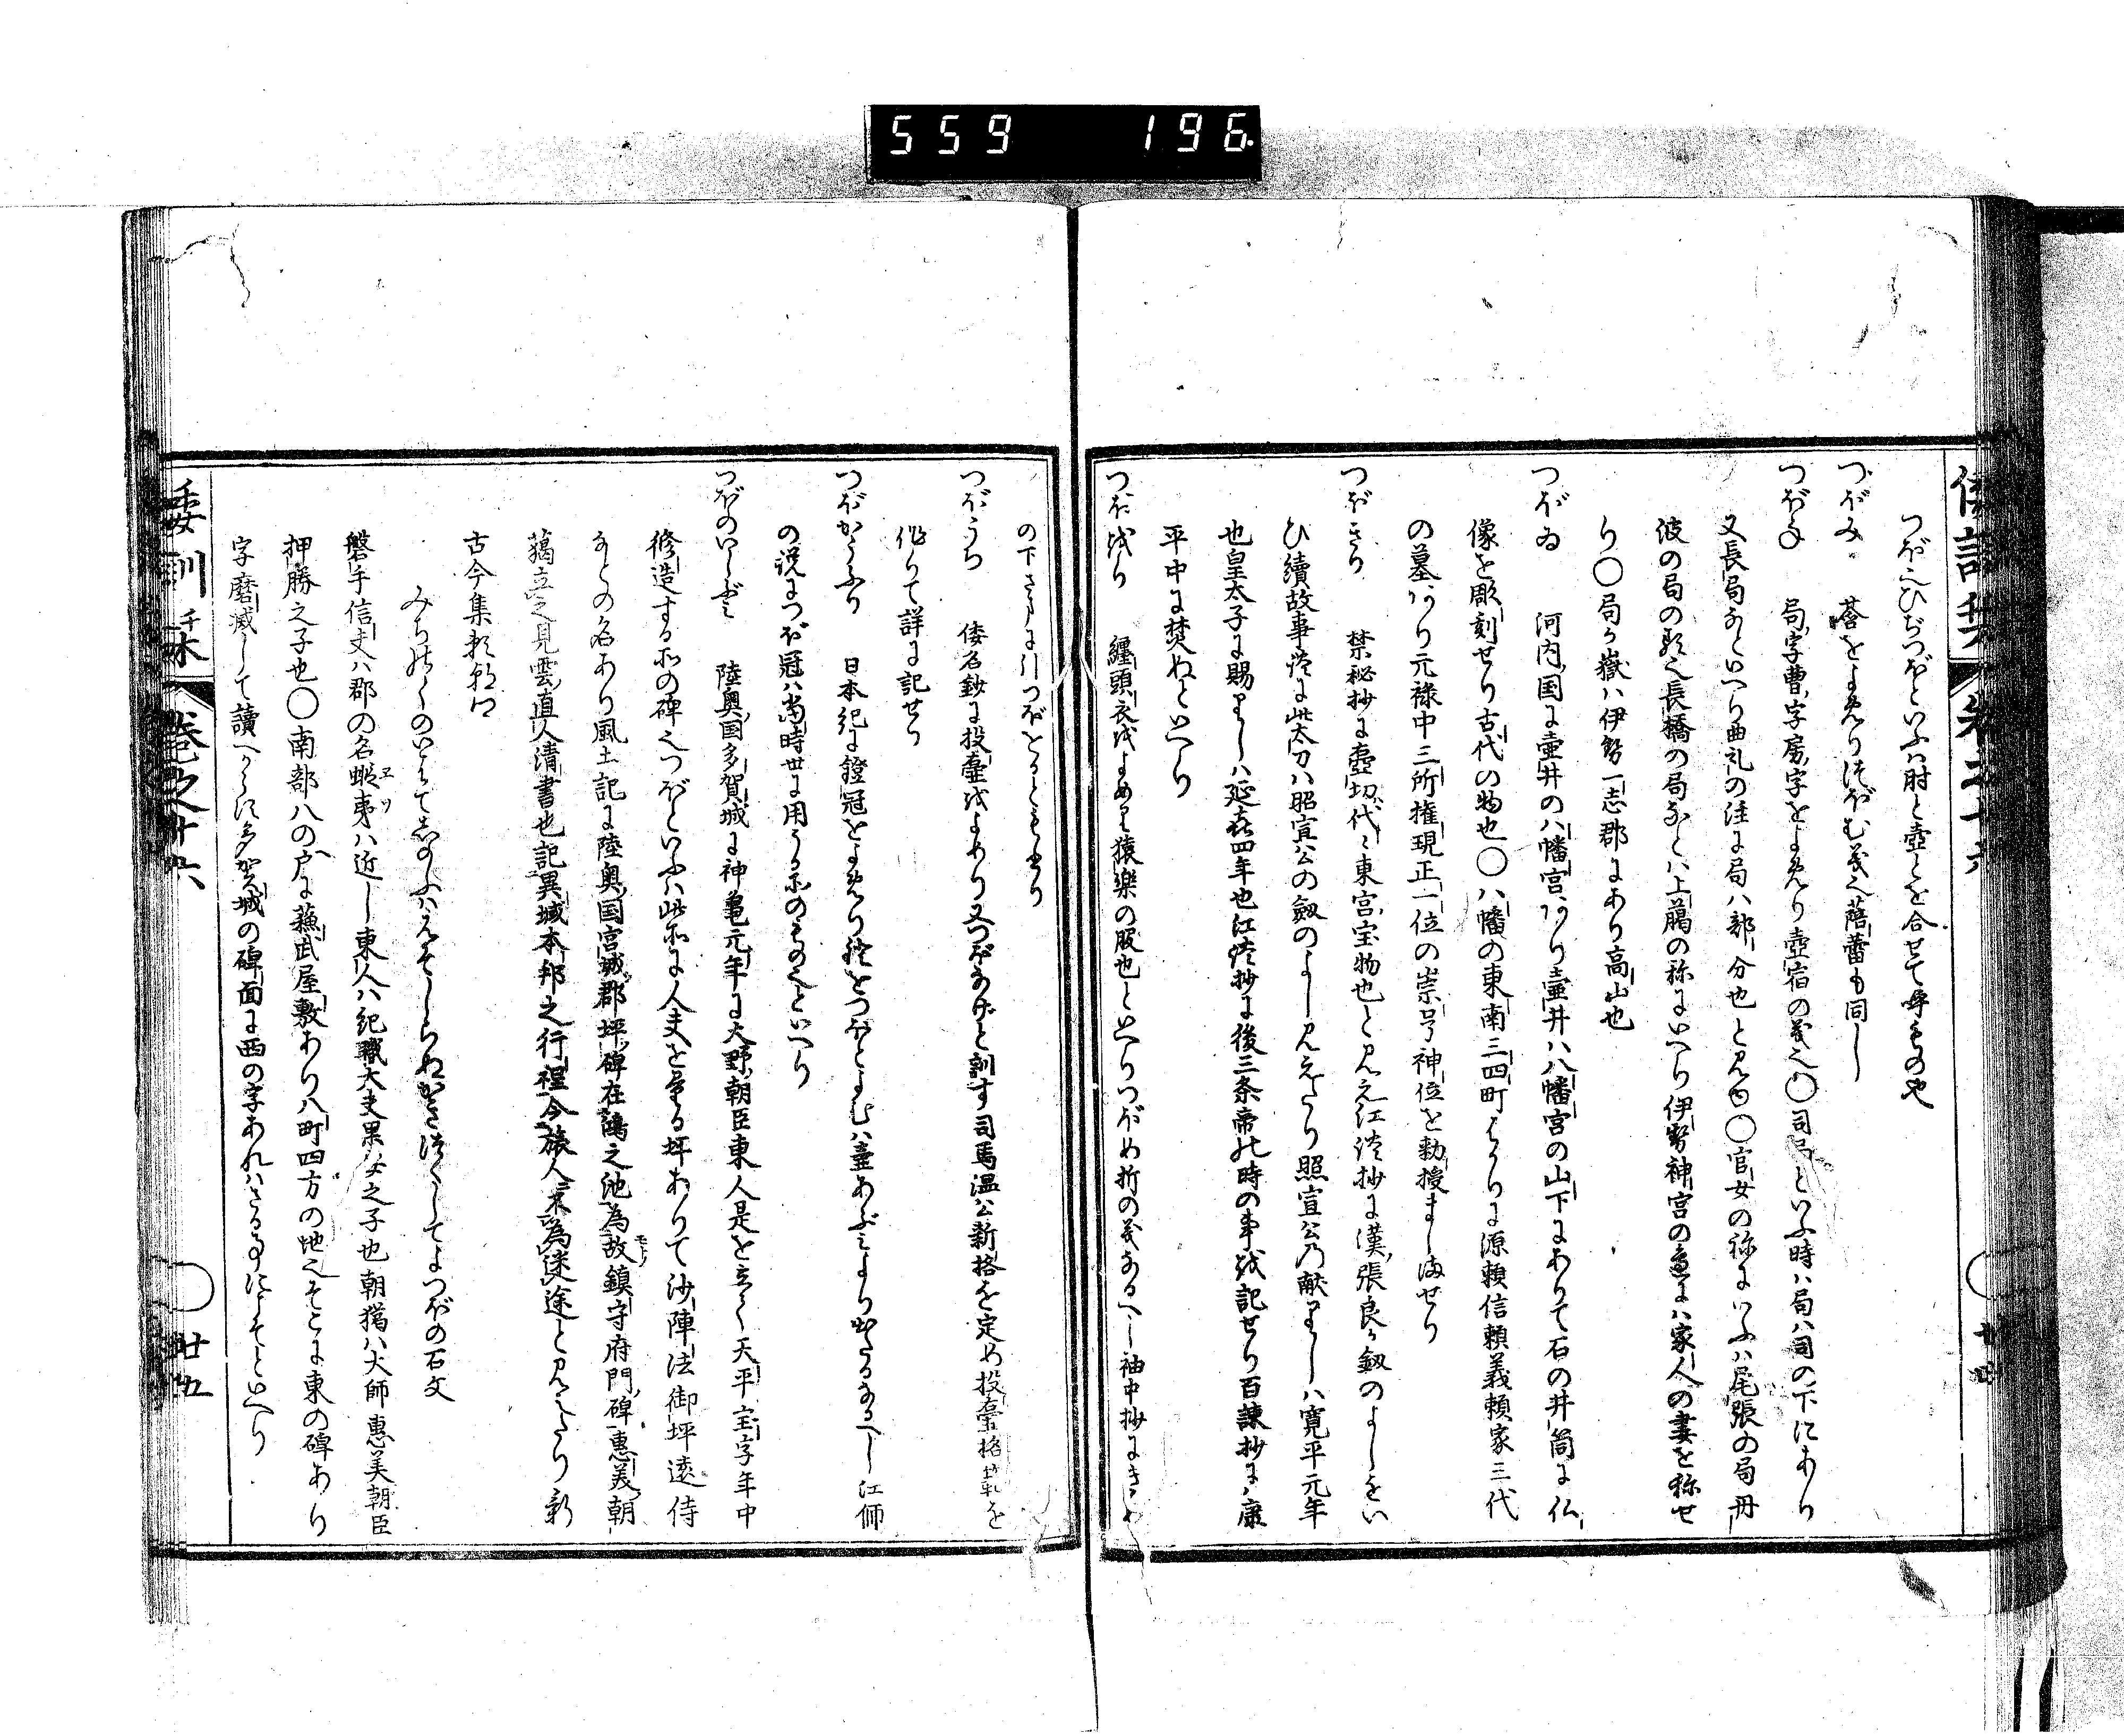 559 196
つぼへひぢつぼといふハ肘と壺とを合せて呼もの也
つぼみ 莟をよめりつぼむ義也菡蕾も同し
つぼね 局字曹字房字をよめり壺宿の義也〇司局といふ時ハ局ハ司の下にあり
又長局なといへり曲礼の注に局ハ部分也と見ゆ〇官女の称にいふハ尾張の局丹
波の局の類也長橋の局なとハ上﨟の称にいへり伊勢神宮の邊にハ家人の妻を称せ
り〇局か嶽ハ伊勢一志郡にあり高山也
つぼゐ 河内国に壷井の八幡宮あり壷井ハ八幡宮の山下にありて石の井筒に仏
像を彫刻せり古代の物也〇八幡の東南三四町はかりに源頼信頼義頼家三代
の墓あり元禄中三所権現正一位の崇号神位を勅授まします
つぼきり 禁秘抄に壺切代々東宮宝物也と見え江談抄に漢張良か釼のよしをい
ひ續故事談に此太刀ハ昭宣公の釼のよし見えたり照宣公の献りしハ寛平元年
也皇太子に賜りしハ延喜四年也江談抄に後三条帝の時の事を記せり百諌抄に康
平中に焚ぬといへり
つぼをり 纏頭衣をよめり猿楽の服也といへりつぼめ折の義なるへし袖中抄にきぬ
の下さまに引つぼをるともあり
つぼうち 倭名鈔に投壷をよめり又つぼなげと訓す司馬温公新格を定め投壷格其礼を
作りて詳に記せり
つぼかうふり 日本紀に鐙冠をよめり鐙をつぼとよむハ壷あぶミより出たるなるへし江師
の説につぼ冠ハ當時世に用うる所のもの也といへり
つぼのいしぶミ 陸奥国多賀城に神亀元年に大野朝臣東人是を立て天平宝字年中
修造する所の碑也つぼといふハ此所に人夫を量る坪ありて沙陣法御坪遠侍
なとの名あり風土記に陸奥国宮城郡坪碑在鴻之池為故鎮守府門碑恵美朝
獦立之見雲直人清書也記異域本邦之行程令旅人不為迷途と見えたり新
古今集頼朝
みちのくのいはてしのふハえそしらぬかきつくしてよつぼの石文
磐手信夫ハ郡の名蝦夷ハ近し東人ハ紀職大夫果安之子也朝獦ハ大師惠美朝臣
押勝之子也〇南部八の戸に蘓武屋敷あり八町四方の地也そこに東の碑あり
字磨滅して讀へからす多賀城の碑面に西の字あれハさる事にこそといへり
倭訓栞 巻之十六 廿四
倭訓栞 巻之十六 廿五